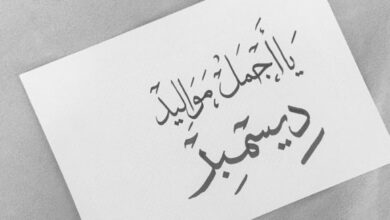 يَا أَجْمَلْ مَوَالِيدْ
دِيسَمْبِرْ